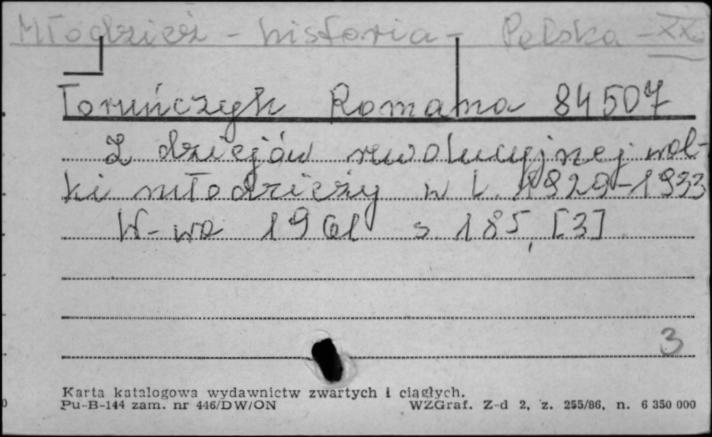 Młodzież - historia - Polska - XX w.
Toruńczyk Romana 84507
Z dziejów rewolucyjnej wal-
ki młodzieży w l. 1929-1933
W-wa 1961 s. 185, [3]
3
Karta katalogowa wydawnictw zwartych i ciągłych.
Pu-B-144 zam. nr 446/DW/ON WZGraf. Z-d 2, z. 255/86, n. 6 350 000